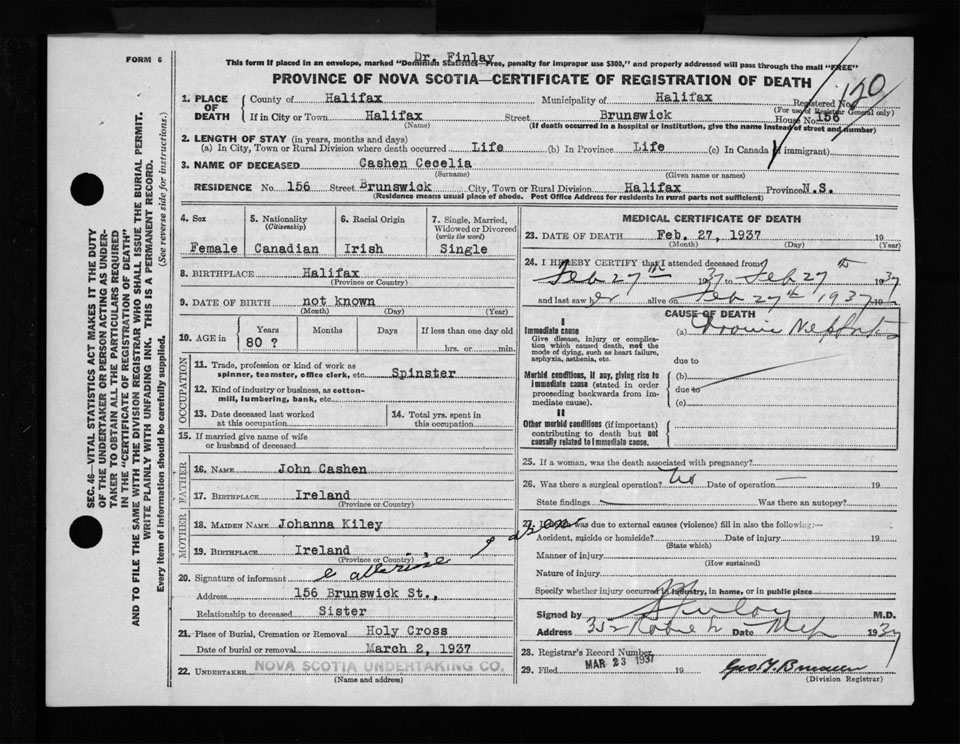 FORM 6
Dr. Finlay
This form if placed in an envelope, marked "Dominion Statistics—Free, penalty for improper use $300," and properly addressed will pass through the mail "FREE"
PROVINCE OF NOVA SCOTIA—CERTIFICATE OF REGISTRATION OF DEATH
1. PLACE OF DEATH
County of Halifax Municipality of Halifax Registered No. 120
(For use of Registrar General only)
If in City or Town Halifax Street Brunswick House No. 156
(Name) (If death occurred in a hospital or institution, give the name instead of street and number)
2. LENGTH OF STAY (in years, months and days)
(a) In City, Town or Rural Division where death occurred Life (b) In Province Life (c) In Canada (if immigrant)
3. NAME OF DECEASED Cashen Cecelia
(Surname) (Given name or names)
RESIDENCE No. 156 Street Brunswick City, Town or Rural Division Halifax Province N.S.
(Residence means usual place of abode. Post Office Address for residents in rural parts not sufficient)
4. Sex
Female
5. Nationality
(Citizenship)
Canadian
6. Racial Origin
Irish
7. Single, Married, Widowed or Divorced
(write the word)
Single
8. BIRTHPLACE Halifax
(Province or Country)
9. DATE OF BIRTH not known
(Month) (Day) (Year)
10. AGE in
Years Months Days If less than one day old
80 ? hrs. or min.
OCCUPATION
11. Trade, profession or kind of work as
spinner, teamster, office clerk, etc. Spinster
12. Kind of industry or business, as cotton-
mill, lumbering, bank, etc.
13. Date deceased last worked
at this occupation
14. Total yrs. spent in
this occupation
15. If married give name of wife
or husband of deceased
FATHER
16. NAME John Cashen
17. BIRTHPLACE Ireland
(Province or Country)
MOTHER
18. MAIDEN NAME Johanna Kiley
19. BIRTHPLACE Ireland
(Province or Country)
20. Signature of informant
Address 156 Brunswick St.,
Relationship to deceased Sister
21. Place of Burial, Cremation or Removal Holy Cross
Date of burial or removal March 2, 1937
22. UNDERTAKER NOVA SCOTIA UNDERTAKING CO.
(Name and address)
MEDICAL CERTIFICATE OF DEATH
23. DATE OF DEATH Feb. 27, 1937 19
(Month) (Day) (Year)
24. I HEREBY CERTIFY that I attended deceased from
Feb 27th 1937 Feb 27th 1937
and last saw her alive on Feb 27th 1937 19
CAUSE OF DEATH
I
Immediate cause
Give disease, injury or complica-
tion which caused death, not the
mode of dying, such as heart failure,
asphyxia, asthenia, etc.
(a)
due to
Morbid conditions, if any, giving rise to
immediate cause (stated in order
proceeding backwards from im-
mediate cause).
(b)
due to
(c)
II
Other morbid conditions (if important)
contributing to death but not
causally related to immediate cause.
25. If a woman, was the death associated with pregnancy?
26. Was there a surgical operation? No Date of operation — 19
State findings Was there an autopsy?
27. If death was due to external causes (violence) fill in also the following:—
Accident, suicide or homicide? Date of injury 19
(State which)
Manner of injury
(How sustained)
Nature of injury
Specify whether injury occurred in industry, in home, or in public place
Signed by Finlay M.D.
Address Date 1937
28. Registrar's Record Number
MAR 23 1937
29. Filed 19
(Division Registrar)
SEC. 46—VITAL STATISTICS ACT MAKES IT THE DUTY
OF THE UNDERTAKER OR PERSON ACTING AS UNDER-
TAKER TO OBTAIN ALL THE PARTICULARS REQUIRED
IN THE "CERTIFICATE OF REGISTRATION OF DEATH"
AND TO FILE THE SAME WITH THE DIVISION REGISTRAR WHO SHALL ISSUE THE BURIAL PERMIT.
WRITE PLAINLY WITH UNFADING INK. THIS IS A PERMANENT RECORD.
Every item of information should be carefully supplied. (See reverse side for instructions.)